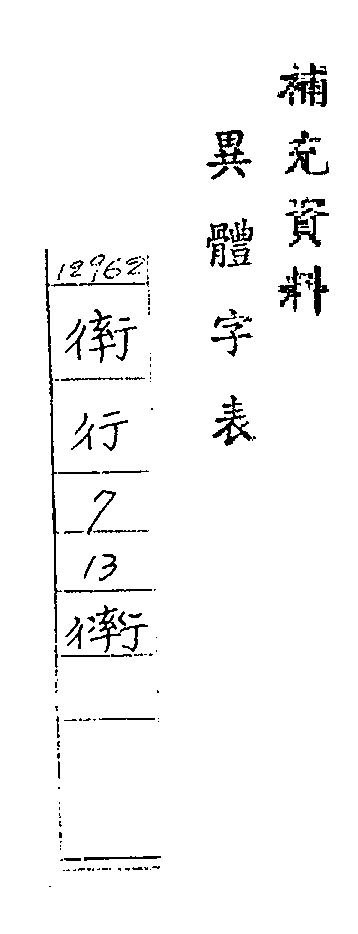 補充資料
異體字表
12962
行
7
13